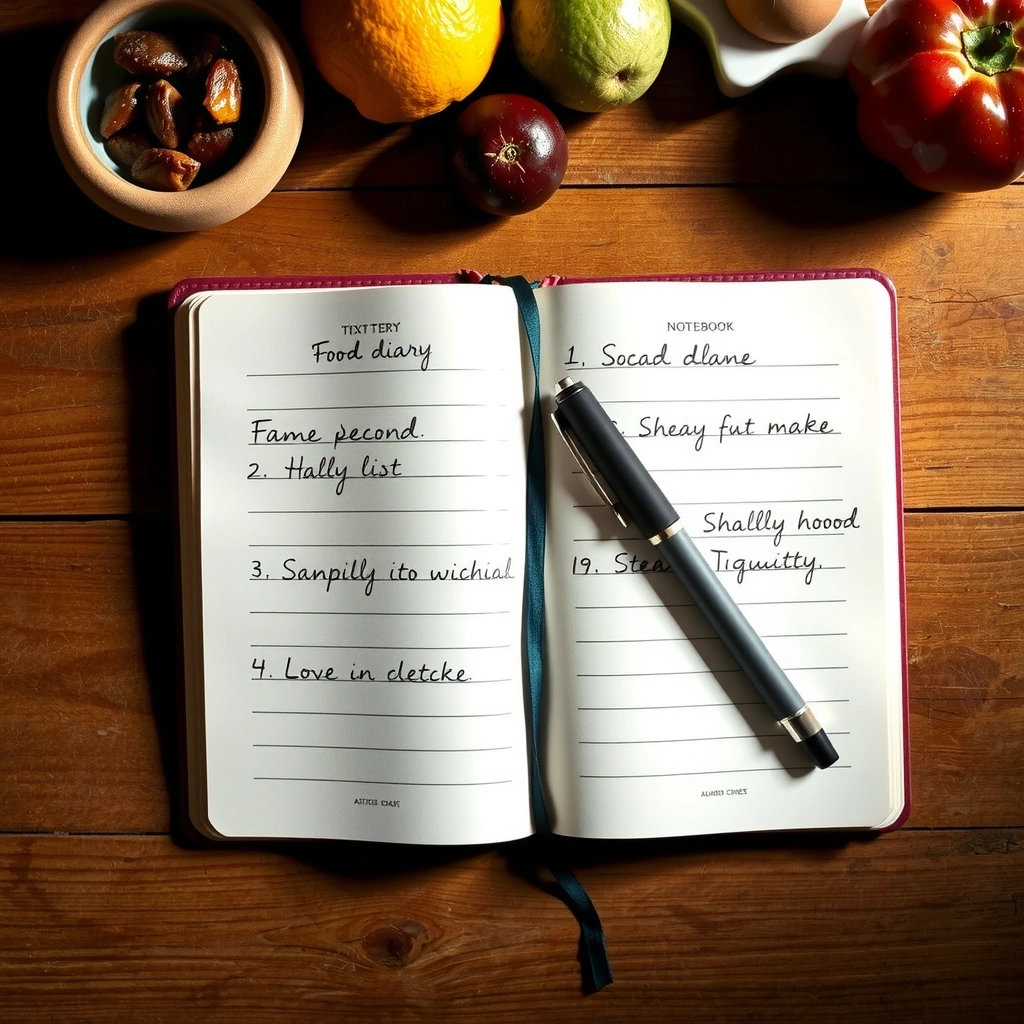 TIXTTERY
Food diary
Fame pecond.
2. Hally list
3. Sanpilly ito wichial
4. Love in detcke.
NOTEBOOK
1. Socad dlane
Sheay fut make
Shallly hoood
19. Stea Tiguitty.